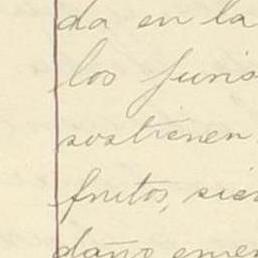 da en la
los juris
sostienen
frutos, sien
daño emer